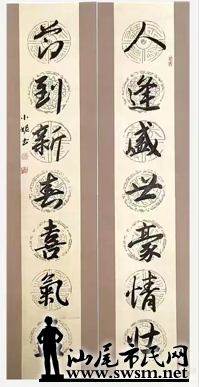 人逢盛世豪情壮
节到新春喜氣
汕尾市民网
www.swsm.net